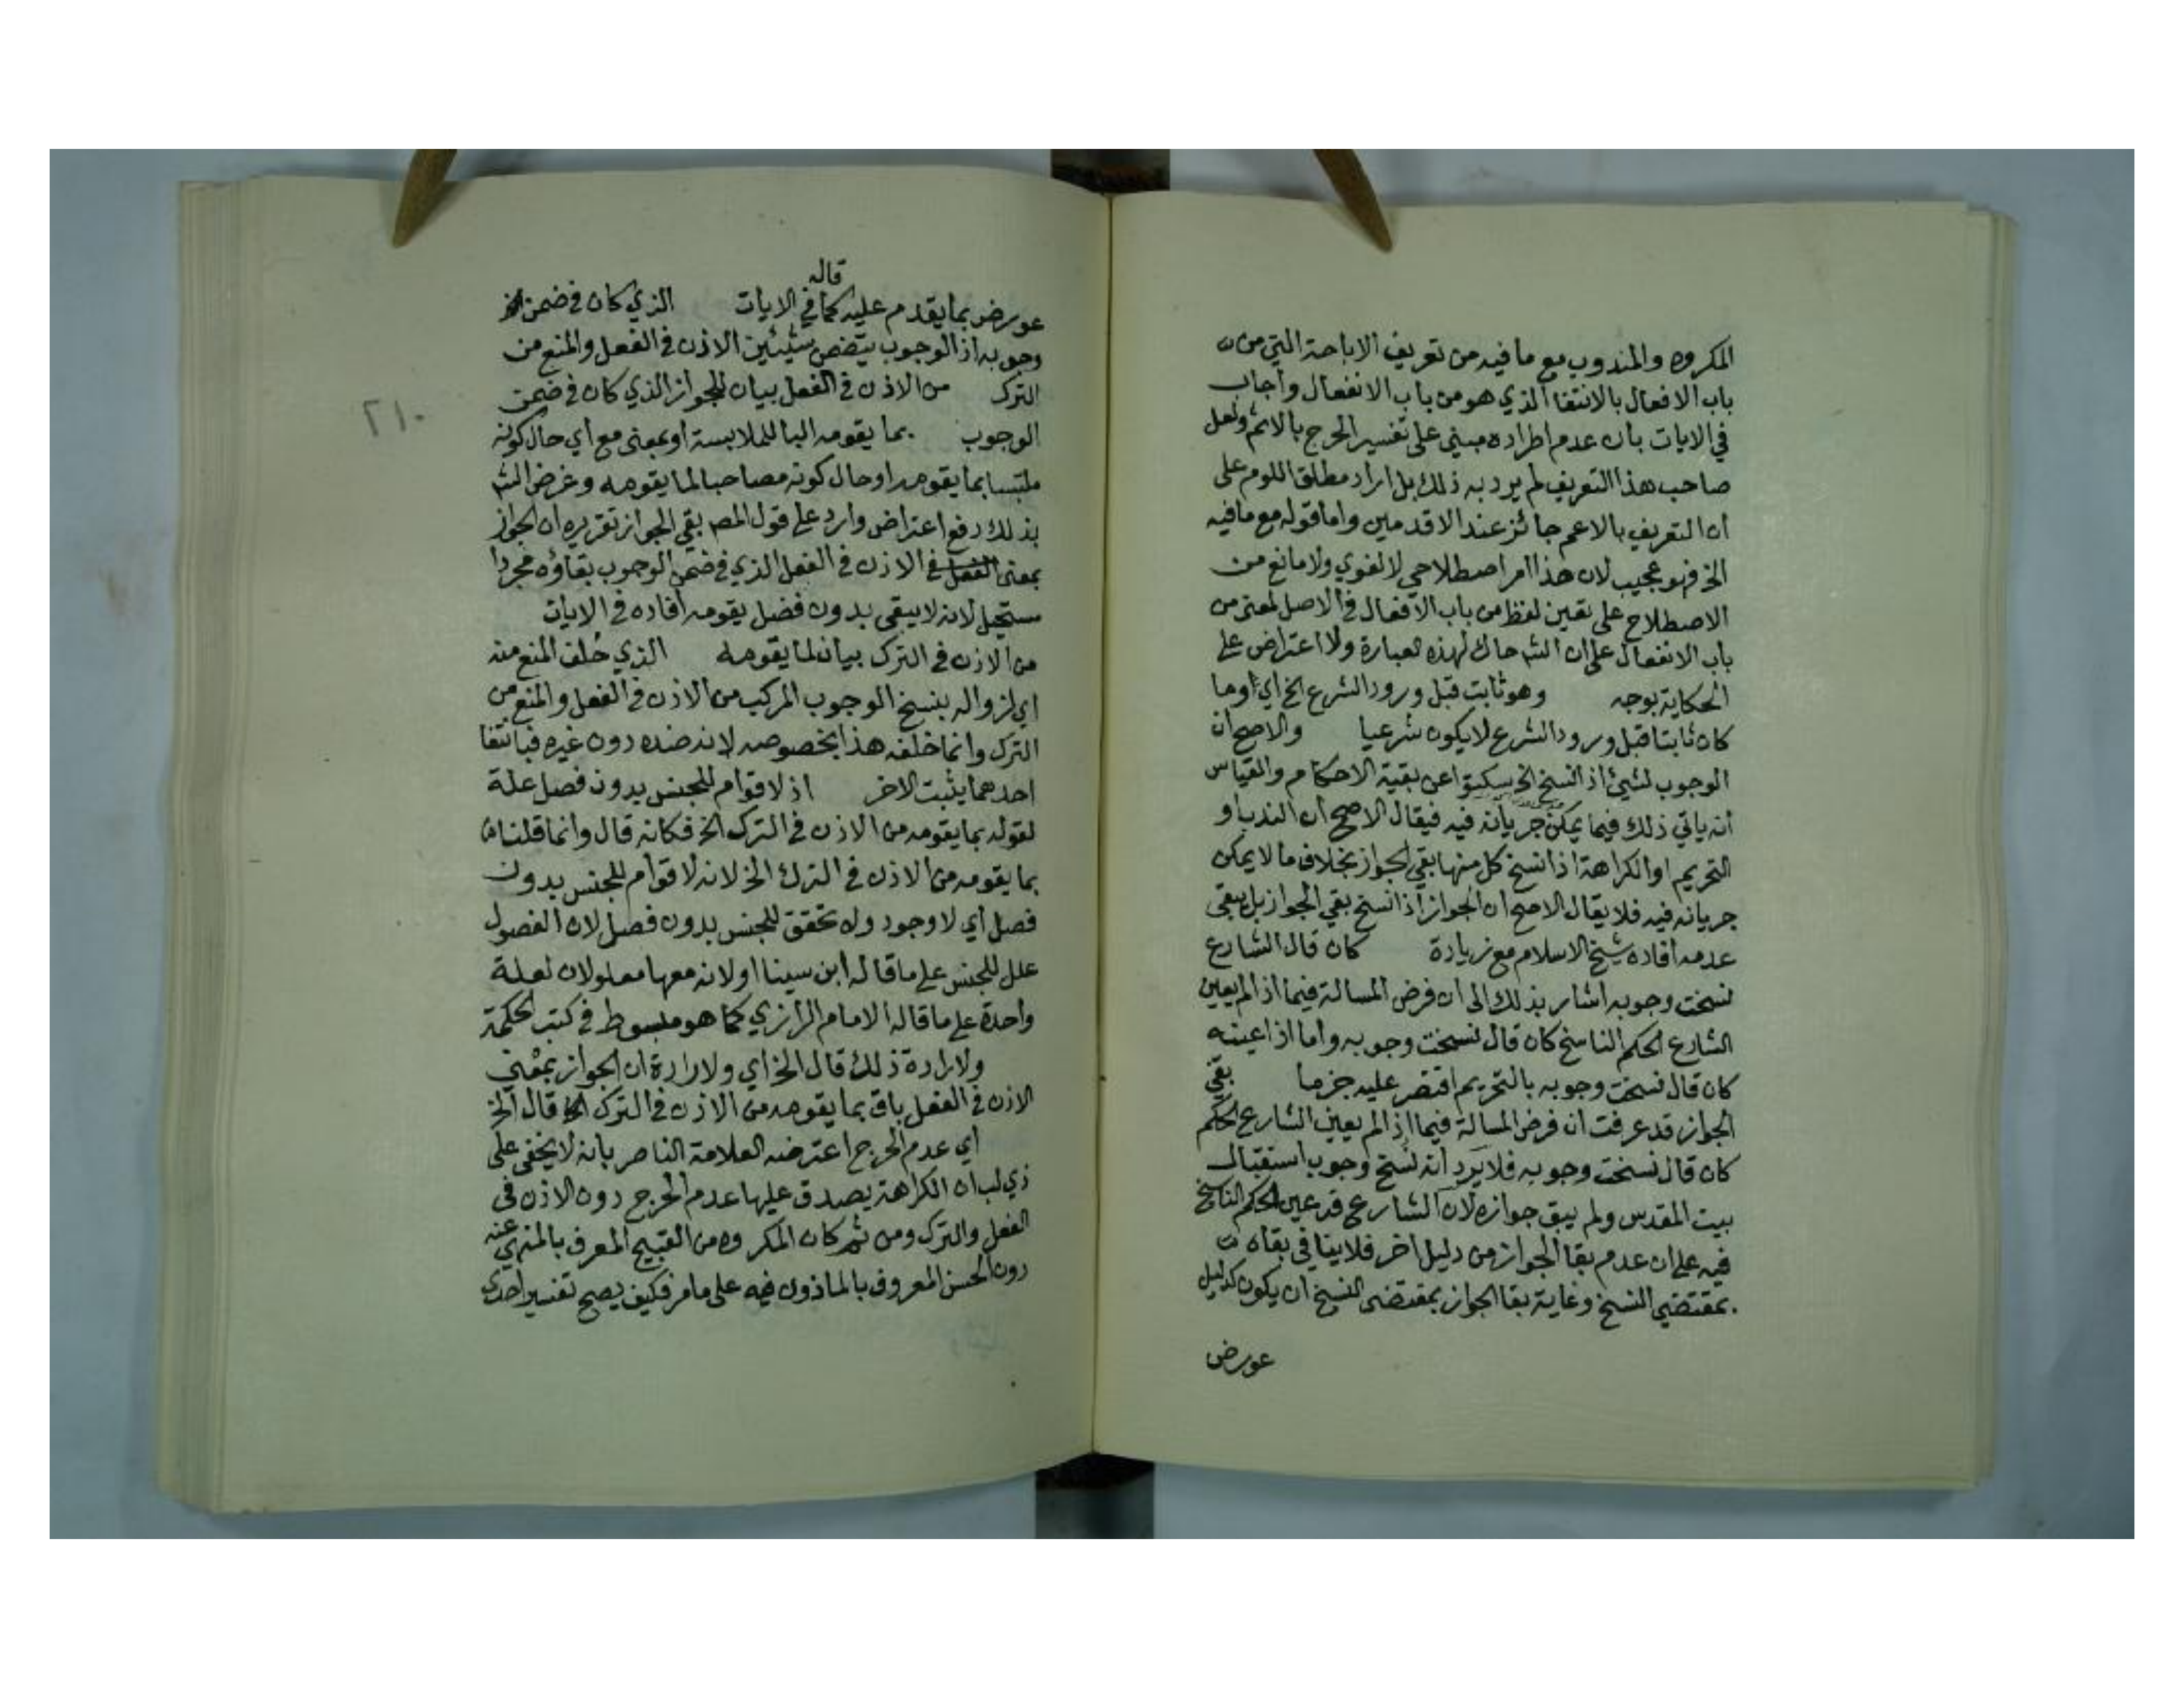 المكروه والمندوب مع ما فيه من تعريف الاباحة التي من
باب الافعال بالانتفا الذي هو من باب الانفعال واجاب
في الايات بان عدم اطراده مبني على تفسير الحرج بالاثم ولعل
صاحب هذا التعريف لم يرد به ذلك بل اراد مطلق اللوم على
ان التعريف بالاعم جائز عند الاقدمين واما قوله مع ما فيه
الخ فهو عجيب لان هذا امر اصطلاحي لا لغوي ولا مانع من
الاصطلاح على تعين لفظ من باب الافعال في الاصل لمعنى من
باب الانفعال على ان الشـ حاك لهذه العبارة ولا اعتراض على
الحكاية بوجه وهو ثابت قبل ورود الشرع الخ اي وما
كان ثابتا قبل ورود الشرع لا يكون شرعيا والاصح ان
الوجوب لشيئ اذا نسخ الخ سكتوا عن بقية الاحكام والقياس
انه ياتي ذلك فيما يمكن جريانه فيه فيقال الاصح ان الندب او
التحريم او الكراهة اذا نسخ كل منها بقي الجواز بخلاف ما لا يمكن
جريانه فيه فلا يقال الاصح ان الجواز اذا نسخ بقي الجواز بل يبقى
عدمه افاده شيخ الاسلام مع زيادة كان قال الشارع
نسخت وجوبه اشار بذلك الى ان فرض المسالة فيما اذا لم يعين
الشارع الحكم الناسخ كان قال نسخت وجوبه واما اذا عينه
كان قال نسخت وجوبه بالتحريم اقتصر عليه جزما بقي
الجواز قد عرفت ان فرض المسالة فيما اذا لم يعين الشارع الحكم
كان قال نسخت وجوبه فلا يرد انه نسخ وجوب استقبال
بيت المقدس ولم يبق جوازه لان الشارع قد عين الحكم الناسخ
فيه على ان عدم بقا الجواز من دليل اخر فلا ينافي بقاه
بمقتضى النسخ وغاية بقا الجواز بمقتضى النسخ ان يكون كدليل
عورض
قاله
عورض بما يقدم عليه كما في الايات الذي كان في ضمن
وجوبه اذ الوجوب يتضمن شيئين الاذن في الفعل والمنع من
الترك من الاذن في الفعل بيان للجواز الذي كان في ضمن
الوجوب بما يقومه البا للملابسة او بمعنى مع اي حال كونه
ملتبسا بما يقومه او حال كونه مصاحبا لما يقومه وغرض الشـ
بذلك دفع اعتراض وارد على قول المصـ بقي الجواز تقريره ان الجواز
بمعنى الفعل في الاذن في الفعل الذي في ضمن الوجوب بقاؤه مجردا
مستحيل لانه لا يبقى بدون فصل يقومه افاده في الايات
من الاذن في الترك بيان لما يقومه الذي خلف المنع منه
اي لزواله بنسخ الوجوب المركب من الاذن في الفعل والمنع من
الترك وانما خلفه هذا بخصوصه لانه ضده دون غيره فبانتفا
احدهما يثبت الاخر اذ لا قوام للجنس بدون فصل علة
لقوله بما يقومه من الاذن في الترك الخ فكانه قال وانما قلنا
بما يقومه من الاذن في الترك الخ لانه لا قوام للجنس بدون
فصل اي لا وجود ولا تحقق للجنس بدون فصل لان الفصول
علل للجنس على ما قاله ابن سينا او لانه معها معلولان لعلة
واحدة على ما قاله الامام الرازي كما هو مبسوط في كتب الحكمة
ولارادة ذلك قال الخ اي ولارادة ان الجواز بمعنى
الاذن في الفعل باق بما يقومه من الاذن في الترك قال الخ
اي عدم الحرج اعترضه العلامة الناصر بانه لا يخفى على
ذي لب ان الكراهة يصدق عليها عدم الحرج دون الاذن في
الفعل والترك ومن ثم كان المكروه من القبيح المعرف بالمنهي عنه
دون الحسن المعروف بالماذون فيه على ما مر فكيف يصح تفسير احدى
٢١٠